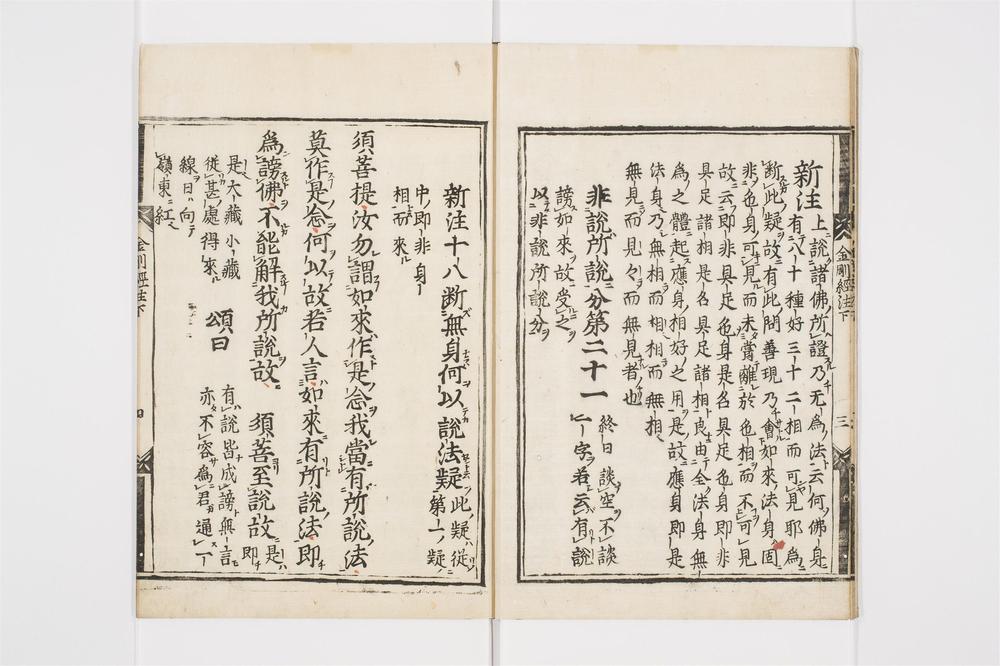 新注上說諸佛所證乃无爲法云何佛身
有八十種好三十二相而可見耶爲
断此疑故有此問善現乃會如來法身固
非色身可見而未嘗離於色相而不可見
故云即非具足色身是名具足色身即非
具足諸相是名具足諸相良由全法身無
爲之體起應身相好之用是故應身即是
法身乃無相而相相而無相
無見而見々而無見者也
非說所說分第二十一 終日談空不談
一字若云有說
謗如來故受之
以非說所說分
金剛經注下
三
新注十八断無身何以說法疑此疑從
第一疑
中即非身
相而來
須菩提汝勿謂如來作是念我當有所說法
莫作是念何以故若人言如來有所說法即
爲謗佛不能解我所說故 須菩至說故是
即
是大藏小藏
從甚處得來
頌曰
有說皆成謗無言
亦不容爲君通一
線日向
嶺東紅
金剛經注下
四